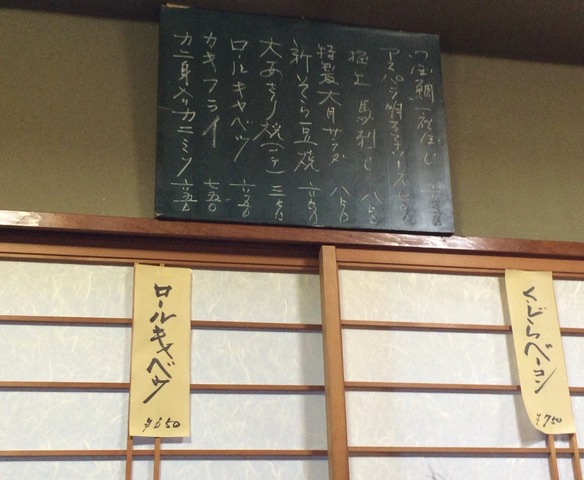 つぼ鯛一夜干し 六五〇
アスパラ明太チーズ 七五〇
極上馬刺し 八五〇
特製大月サラダ 八五〇
新そら豆焼 六五〇
大あさり焼(二ケ) 三五〇
ロールキャベツ 六五〇
カキフライ 七五〇
カニ身入りカニミソ 六五〇
ロールキャベツ
¥650
くじらベーコン
¥750